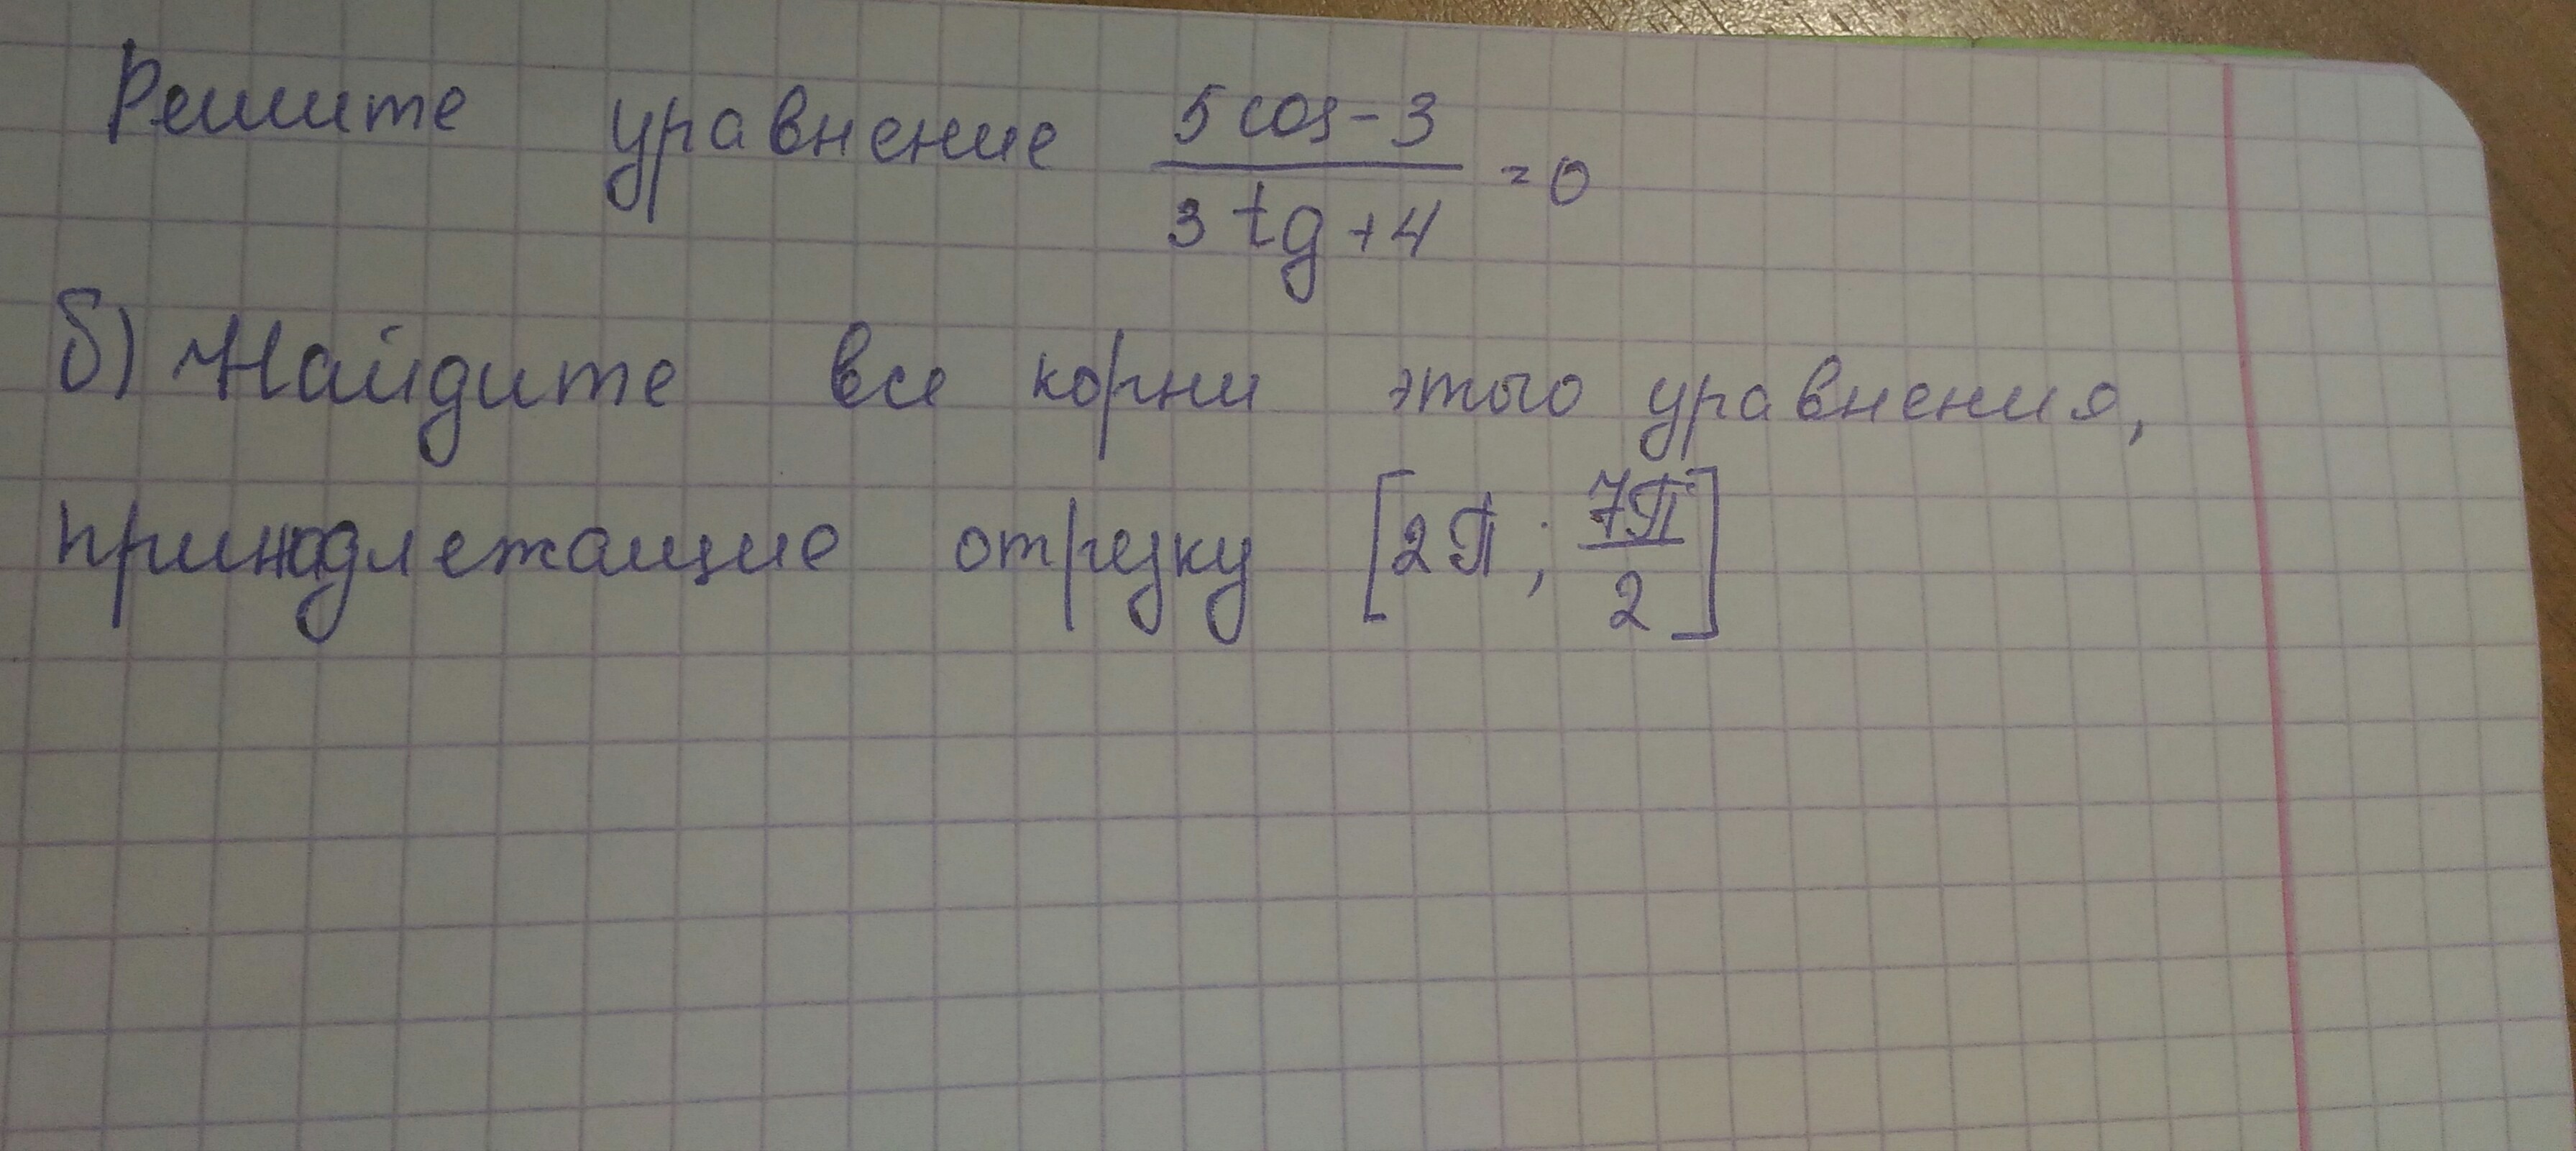 Решите уравнение (5 cos - 3)/(3 tg + 4) = 0
б) Найдите все корни этого уравнения,
принадлежащие отрезку [2π; 7π/2]